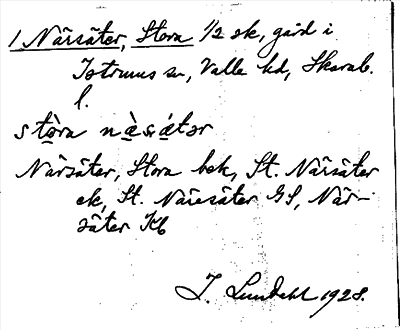 1 Närsäter, Stora 1/2 sk, gård i
Istrums sn, Valle hd, Skarab.
l.
stòra nὲsǽtər
Närsäter, Stora bok, St. Närsäter
ek, St. Näresäter GS, När-
säter Kb
I. Lundahl 1928.